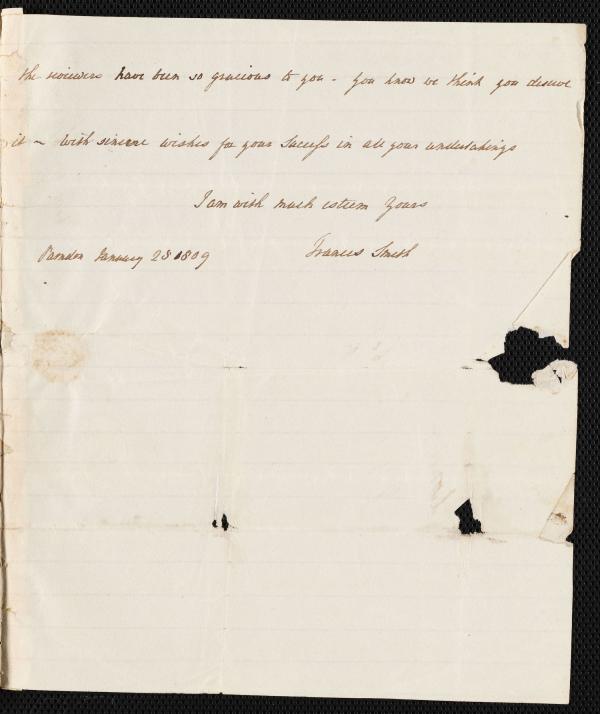 the reviewers have been so gracious to you - you know we think you deserve
it ~ With sincere wishes for your Success in all your undertakings
I am with much esteem Yours
Parndon January 28 1809 Frances Smith